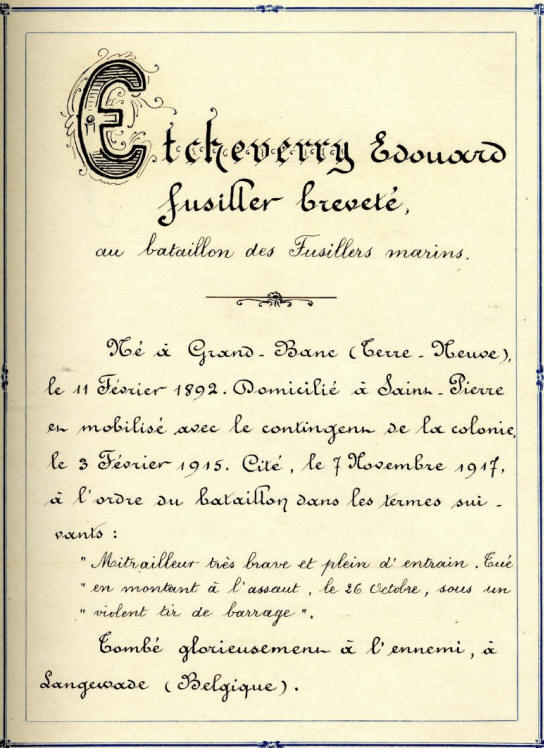 Etcheverry Edouard
fusiller breveté,
au bataillon des Fusillers marins.
Né à Grand-Banc (Terre-Neuve),
le 11 Février 1892. Domicilié à Saint-Pierre
et mobilisé avec le contingent de la colonie,
le 3 Février 1915. Cité, le 7 Novembre 1917,
à l'ordre du bataillon dans les termes sui-
vants :
" Mitrailleur très brave et plein d'entrain. Tué
" en montant à l'assaut, le 26 Octobre, sous un
" violent tir de barrage ".
Tombé glorieusement à l'ennemi, à
Langewade (Belgique).